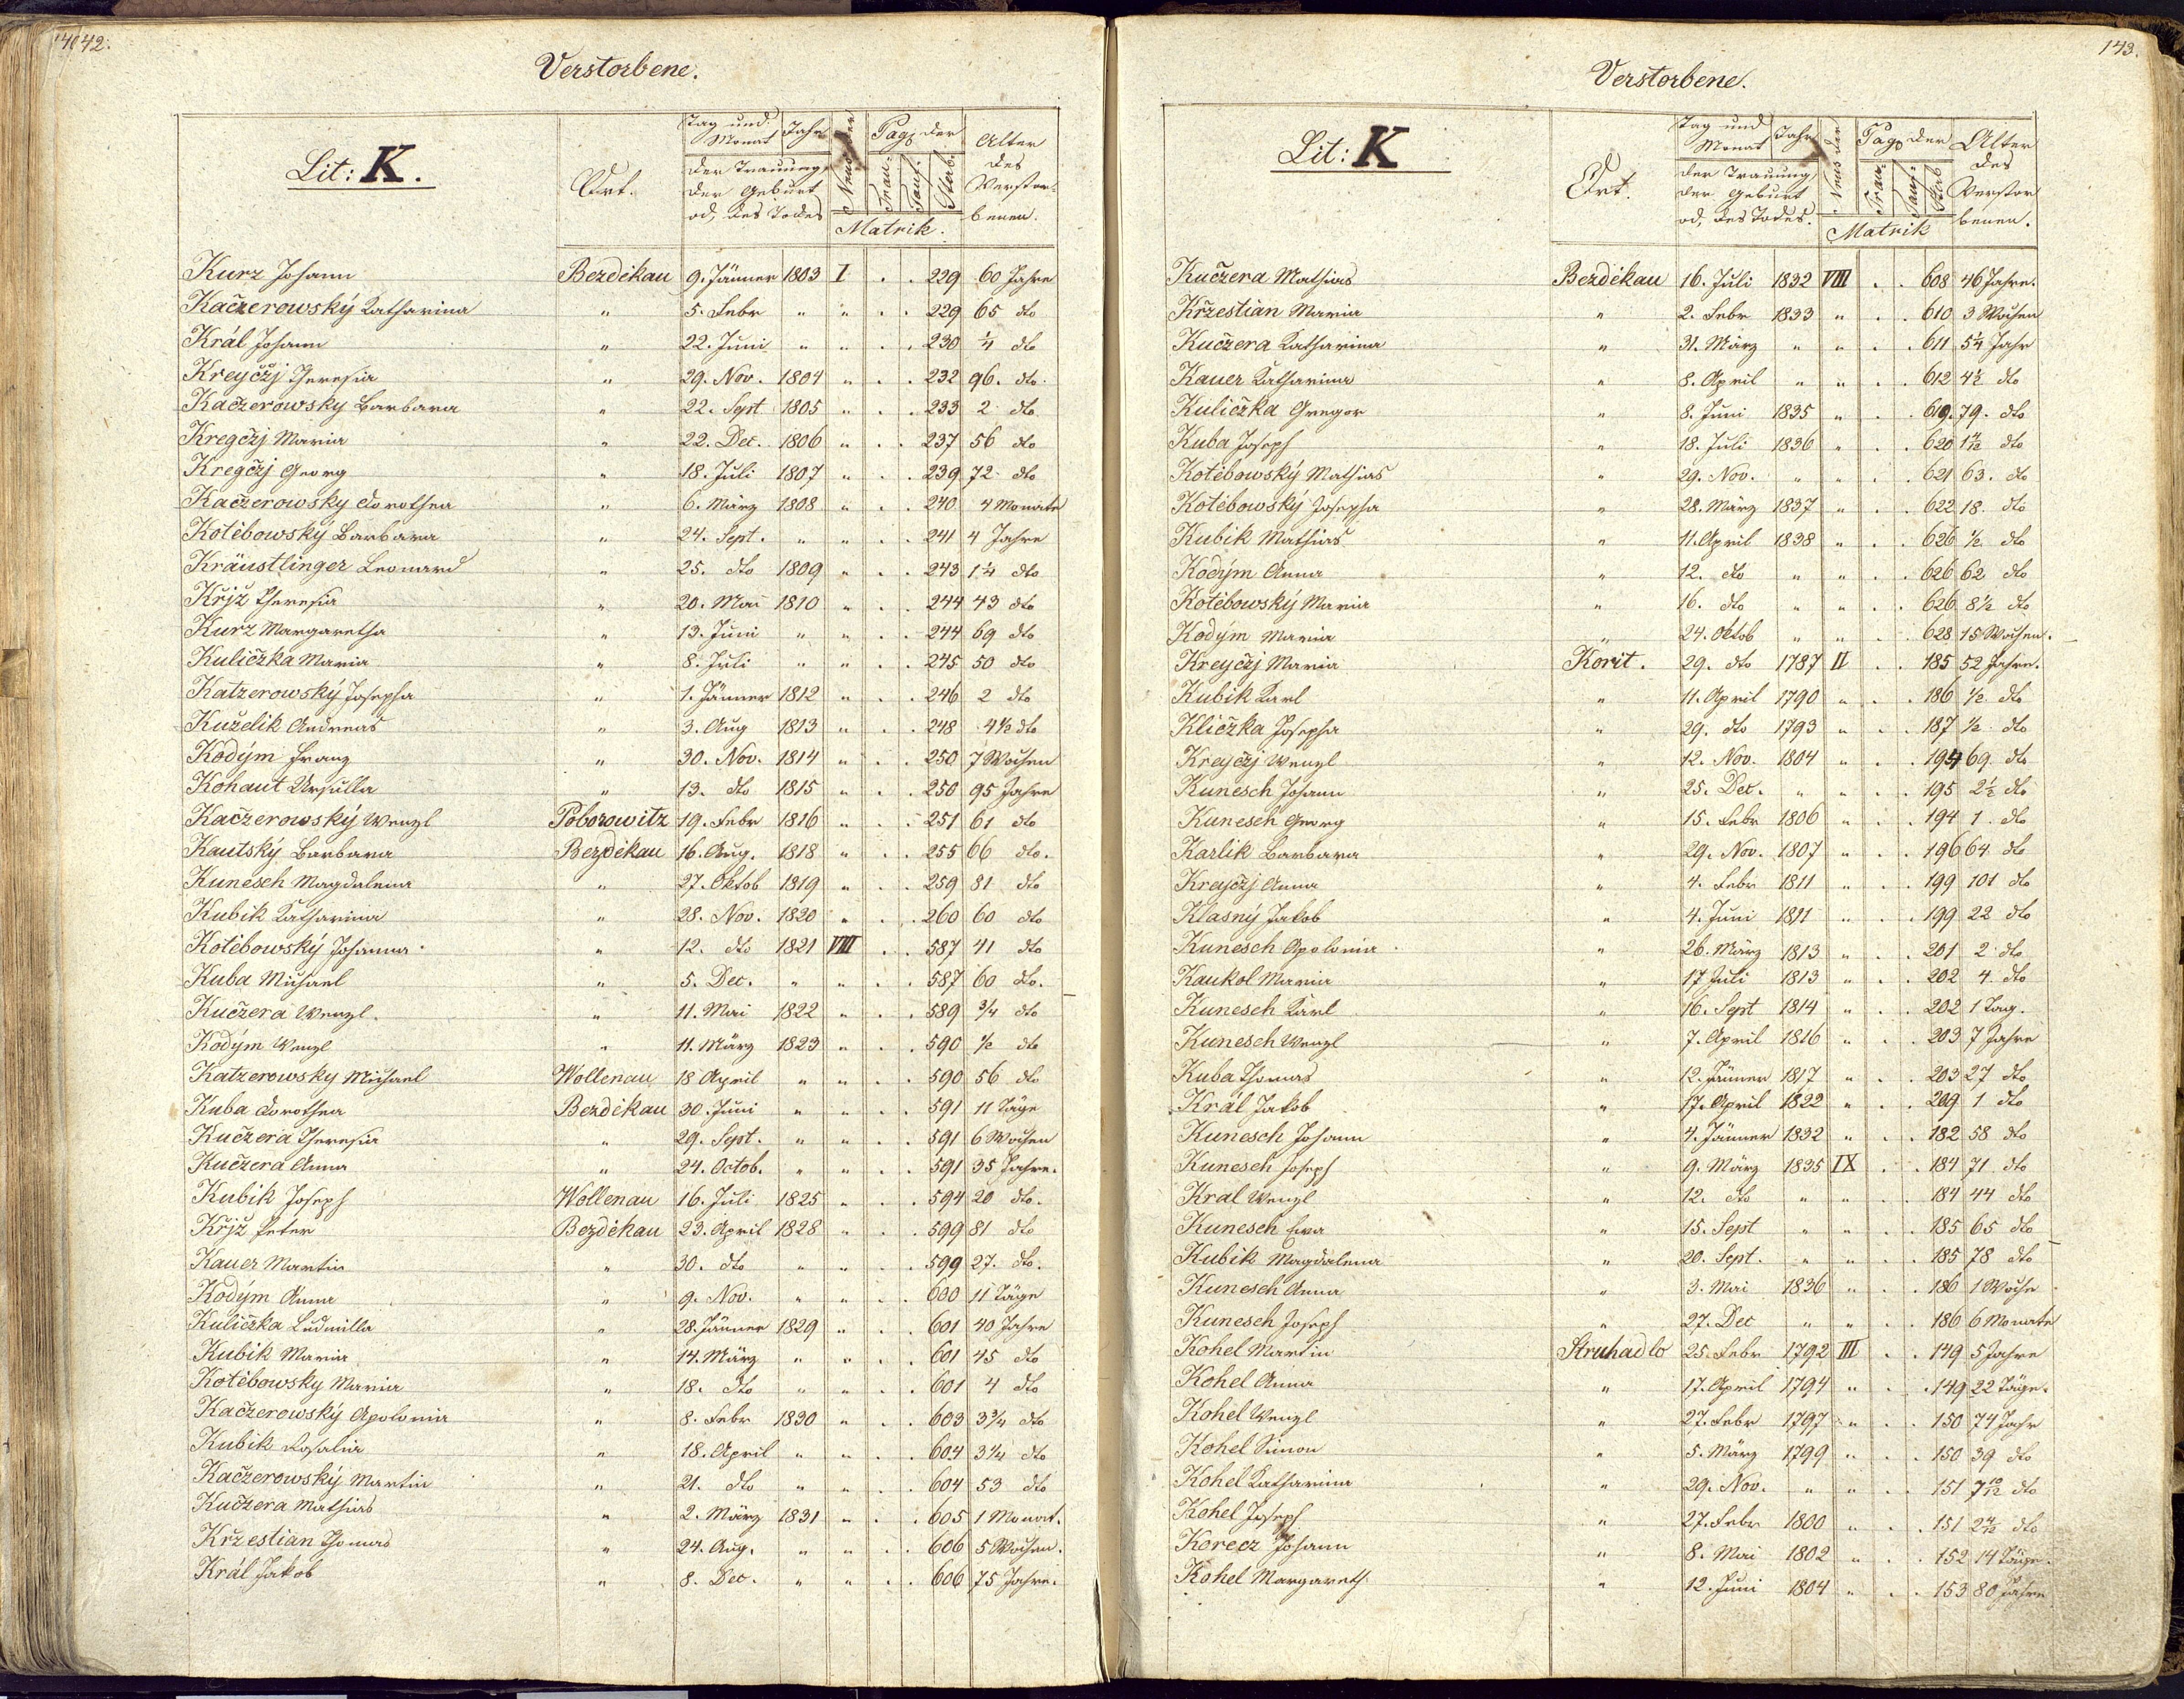 142.
Verstorbene.
Lit: K. Ort. Tag und Monat Jahr der Trauung, der Geburt od, des Todes Pag der Trau- Tauf- Sterb. Matrik. Alter des Verstorbenen.
Kurz Johann Bezdĕkau 9. Jänner 1803 I . . 229 60 Jahre
Kačzerowský Katharina " 5. Febr " " . . 229 65 dto
Král Johann " 22. Juni " " . . 230 1/4 dto
Kreyčzj Theresia " 29. Nov. 1804 " . . 232 96. dto
Kačzerowsky Barbara " 22. Sept 1805 " . . 233 2 dto
Kregčzj Maria " 22. Dec. 1806 " . . 237 56 dto
Kregčzj Georg " 18. Juli 1807 " . . 239 72 dto
Kačzerowsky Dorothea " 6. März 1808 " . . 240 4 Monate
Kotĕbowský Barbara " 24. Sept. " " . . 241 4 Jahre
Kräustlinger Leonard " 25. dto 1809 " . . 243 1 1/4 dto
Křjž Theresia " 20. Mai 1810 " . . 244 43 dto
Kurz Margaretha " 13. Juni " " . . 244 69 dto
Kuličzka Maria " 8. Juli " " . . 245 50 dto
Katzerowský Josepha " 1. Jänner 1812 " . . 246 2 dto
Kuželik Andreas " 3. Aug 1813 " . . 248 4 1/2 dto
Kodým Franz " 30. Nov. 1814 " . . 250 7 Wochen
Kohaut Ursulla " 13. dto 1815 " . . 250 95 Jahre
Kačzerowský Wenzl Poborowitz 19. Febr 1816 " . . 251 61 dto
Kautský Barbara Bezdĕkau 16. Aug. 1818 " . . 255 66 dto.
Kunesch Magdalena " 27. Oktob 1819 " . . 259 81 dto
Kubik Katharina " 28. Nov. 1820 " . . 260 60 dto
Kotĕbowský Johanna " 12. dto 1821 VIII . . 587 41 dto
Kuba Michael " 5. Dec. " " . . 587 60 dto.
Kučzera Wenzl. " 11. Mai 1822 " . . 589 3/4 dto
Kodým Wenzl " 11. März 1823 " . . 590 1/2 dto
Katzerowsky Michael Wollenau 18 April " " . . 590 56 dto
Kuba Dorothea Bezdĕkau 30. Juni " " . . 591 11 Täge
Kučzera Theresia " 29. Sept. " " . . 591 6 Wochen
Kučzera Anna " 24. Octob. " " . . 591 35 Jahre.
Kubik Joseph Wollenau 16. Juli 1825 " . . 594 20 dto.
Křjž Peter Bezdĕkau 23. April 1828 " . . 599 81 dto
Kauer Martin " 30. dto " " . . 599 27. dto.
Kodým Anna " 9. Nov. " " . . 600 11 Täge
Kuličzka Ludmilla " 28. Jänner 1829 " . . 601 40 Jahre
Kubik Maria " 14. März " " . . 601 45 dto
Kotĕbowsky Maria " 18. dto " " . . 601 4 dto
Kačzerowský Apolonia " 8. Febr 1830 " . . 603 3 3/4 dto
Kubik Rosalia " 18. April " " . . 604 3 1/4 dto
Kačzerowský Martin " 21. dto " " . . 604 53 dto
Kučzera Mathias " 2. März 1831 " . . 605 1 Monat.
Kržestian Thomas " 24. Aug. " " . . 606 5 Wochen.
Král Jakob " 8. Dec. " " . . 606 75 Jahre.
143.
Verstorbene.
Lit: K Ort. Tag und Monat Jahr der Trauung, der Geburt od, des Todes. Pag der Trau- Tauf- Sterb Matrik Alter des Verstorbenen.
Kučzera Mathias Bezdĕkau 16. Juli 1832 VIII . . 608 46 Jahre.
Kržestian Maria " 2. Febr 1833 " . . 610 3 Wochen
Kučzera Katharina " 31. März " " . . 611 5 1/4 Jahr
Kauer Katharina " 8. April " " . . 612 4 1/2 dto
Kuličzka Gregor " 8. Juni 1835 " . . 619. 79. dto
Kuba Joseph " 18. Juli 1836 " . . 620 dto
Kotĕbowský Mathias " 29. Nov. " " . . 621 63. dto
Kotĕbowský Josepha " 28. März 1837 " . . 622 18 dto
Kubik Mathias " 11. April 1838 " . . 626 1/2 dto
Kodým Anna " 12. dto " " . . 626 62 dto
Kotĕbowský Maria " 16. dto " " . . 626 8 1/2 dto
Kodým Maria " 24. Oktob " " . . 628 15 Wochen.
Kreyčzj Maria Korit. 29. dto 1787 II . . 185 52 Jahre.
Kubik Karl " 11. April 1790 " . . 186 1/2 dto
Kličzka Josepha " 29. dto 1793 " . . 187 1/2 dto
Kreyčzj Wenzl " 12. Nov. 1804 " . . 194 69 dto
Kunesch Johann " 25. Dec. " " . . 195 2 1/2 dto
Kunesch Georg " 15. Febr 1806 " . . 194 1 dto
Karlik Barbara " 29. Nov. 1807 " . . 196 64 dto
Kreyčzj Anna " 4. Febr 1811 " . . 199 101 dto
Klasný Jakob " 4. Juni 1811 " . . 199 22 dto
Kunesch Apolonia " 26. März 1813 " . . 201 2 dto
Kaukol Maria " 17 Juli 1813 " . . 202 4. dto
Kunesch Karl " 16. Sept 1814 " . . 202 1 Tag.
Kunesch Wenzl " 7. April 1816 " . . 203 7 Jahre
Kuba Thomas " 12. Jänner 1817 " . . 203 27 dto
Král Jakob " 17. April 1822 " . . 209 1 dto
Kunesch Johann " 4. Jänner 1832 " . . 182 58 dto
Kunesch Joseph " 9. März 1835 IX . . 184 71 dto
Kral Wenzl " 12. dto " " . . 184 44 dto
Kunesch Ewa " 15. Sept " " . . 185 65 dto
Kubik Magdalena " 20. Sept. " " . . 185 78 dto
Kunesch Anna " 3. Mai 1836 " . . 186 1 Woche
Kunesch Joseph " 27. Dec " " . . 186 6 Monate
Kohel Martin Struhadlo 25. Febr 1792 III . . 149 5 Jahre
Kohel Anna " 17. April 1794 " . . 149 22 Täge.
Kohel Wenzl " 27. Febr 1797 " . . 150 74 Jahr
Kohel Simon " 5. März 1799 " . . 150 39 dto
Kohel Katharina " 29. Nov. " " . . 151 7 10/12 dto
Kohel Joseph " 27. Febr 1800 " . . 151 dto
Korecz Johann " 8. Mai 1802 " . . 152 14 Täge.
Kohel Margareth " 12. Juni 1804 " . . 153 80 Jahre